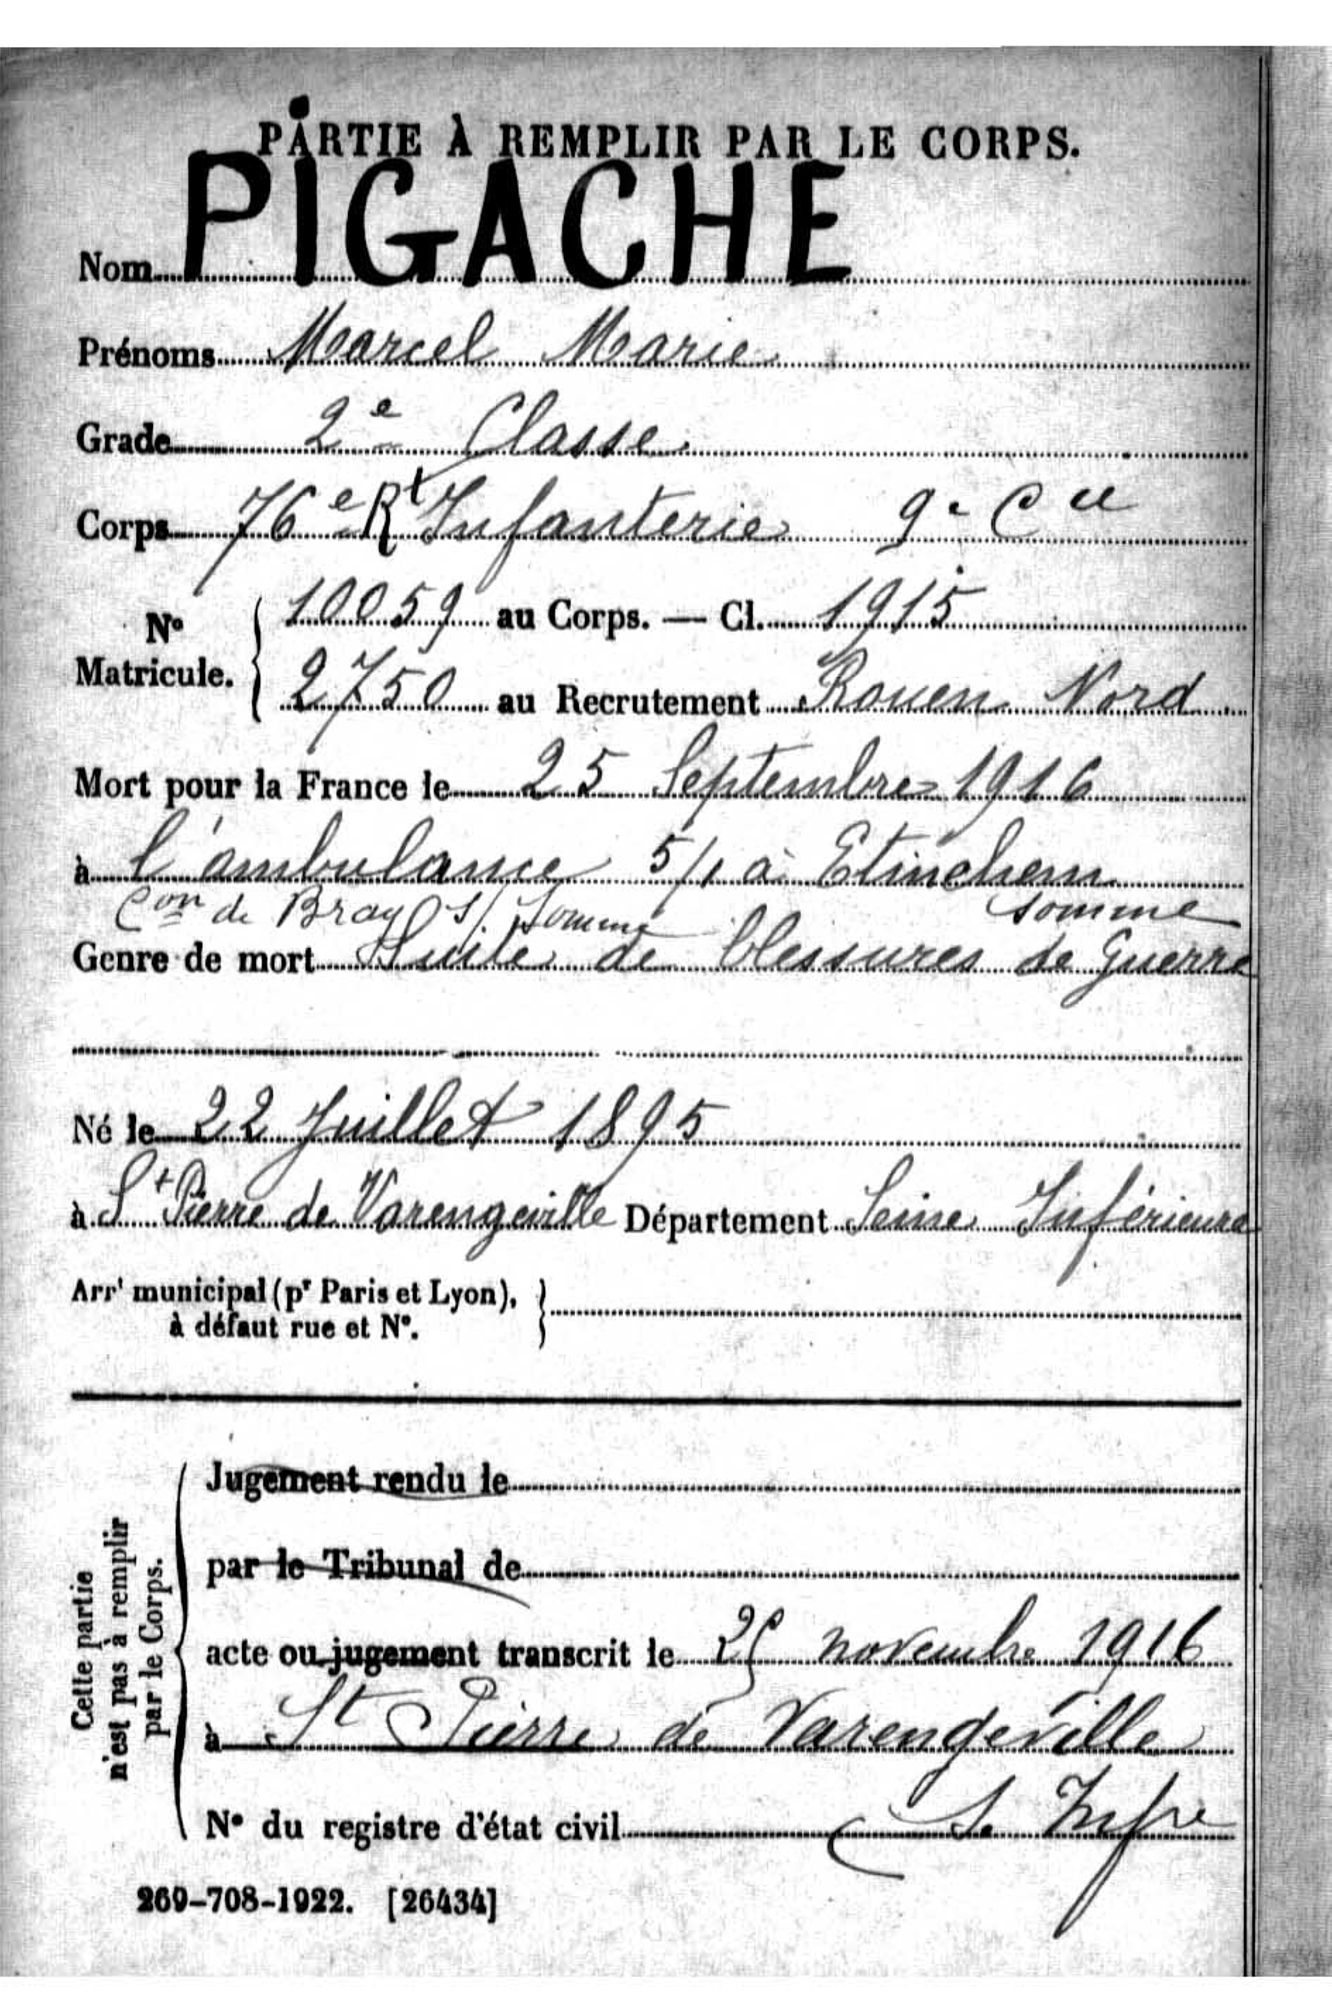 PARTIE À REMPLIR PAR LE CORPS.
Nom PIGACHE
Prénoms Marcel Marie
Grade 2e Classe
Corps 76e Rt Infanterie 9e Cie
No Matricule. { 10059 au Corps. — Cl. 1915
2750 au Recrutement Rouen Nord
Mort pour la France le 25 Septembre 1916
à l'ambulance 5/1 à Etinehem
Con de Bray s/ Somme Somme
Genre de mort Suite de blessures de Guerre
Né le 22 Juillet 1895
à St Pierre de Varengeville Département Seine Inférieure
Arrt municipal (pr Paris et Lyon), }
à défaut rue et No.
Cette partie
n'est pas à remplir
par le Corps.
Jugement rendu le
par le Tribunal de
acte ou jugement transcrit le novembre 1916
à St Pierre de Varengeville
No du registre d'état civil S. Infre
269-708-1922. [26434]